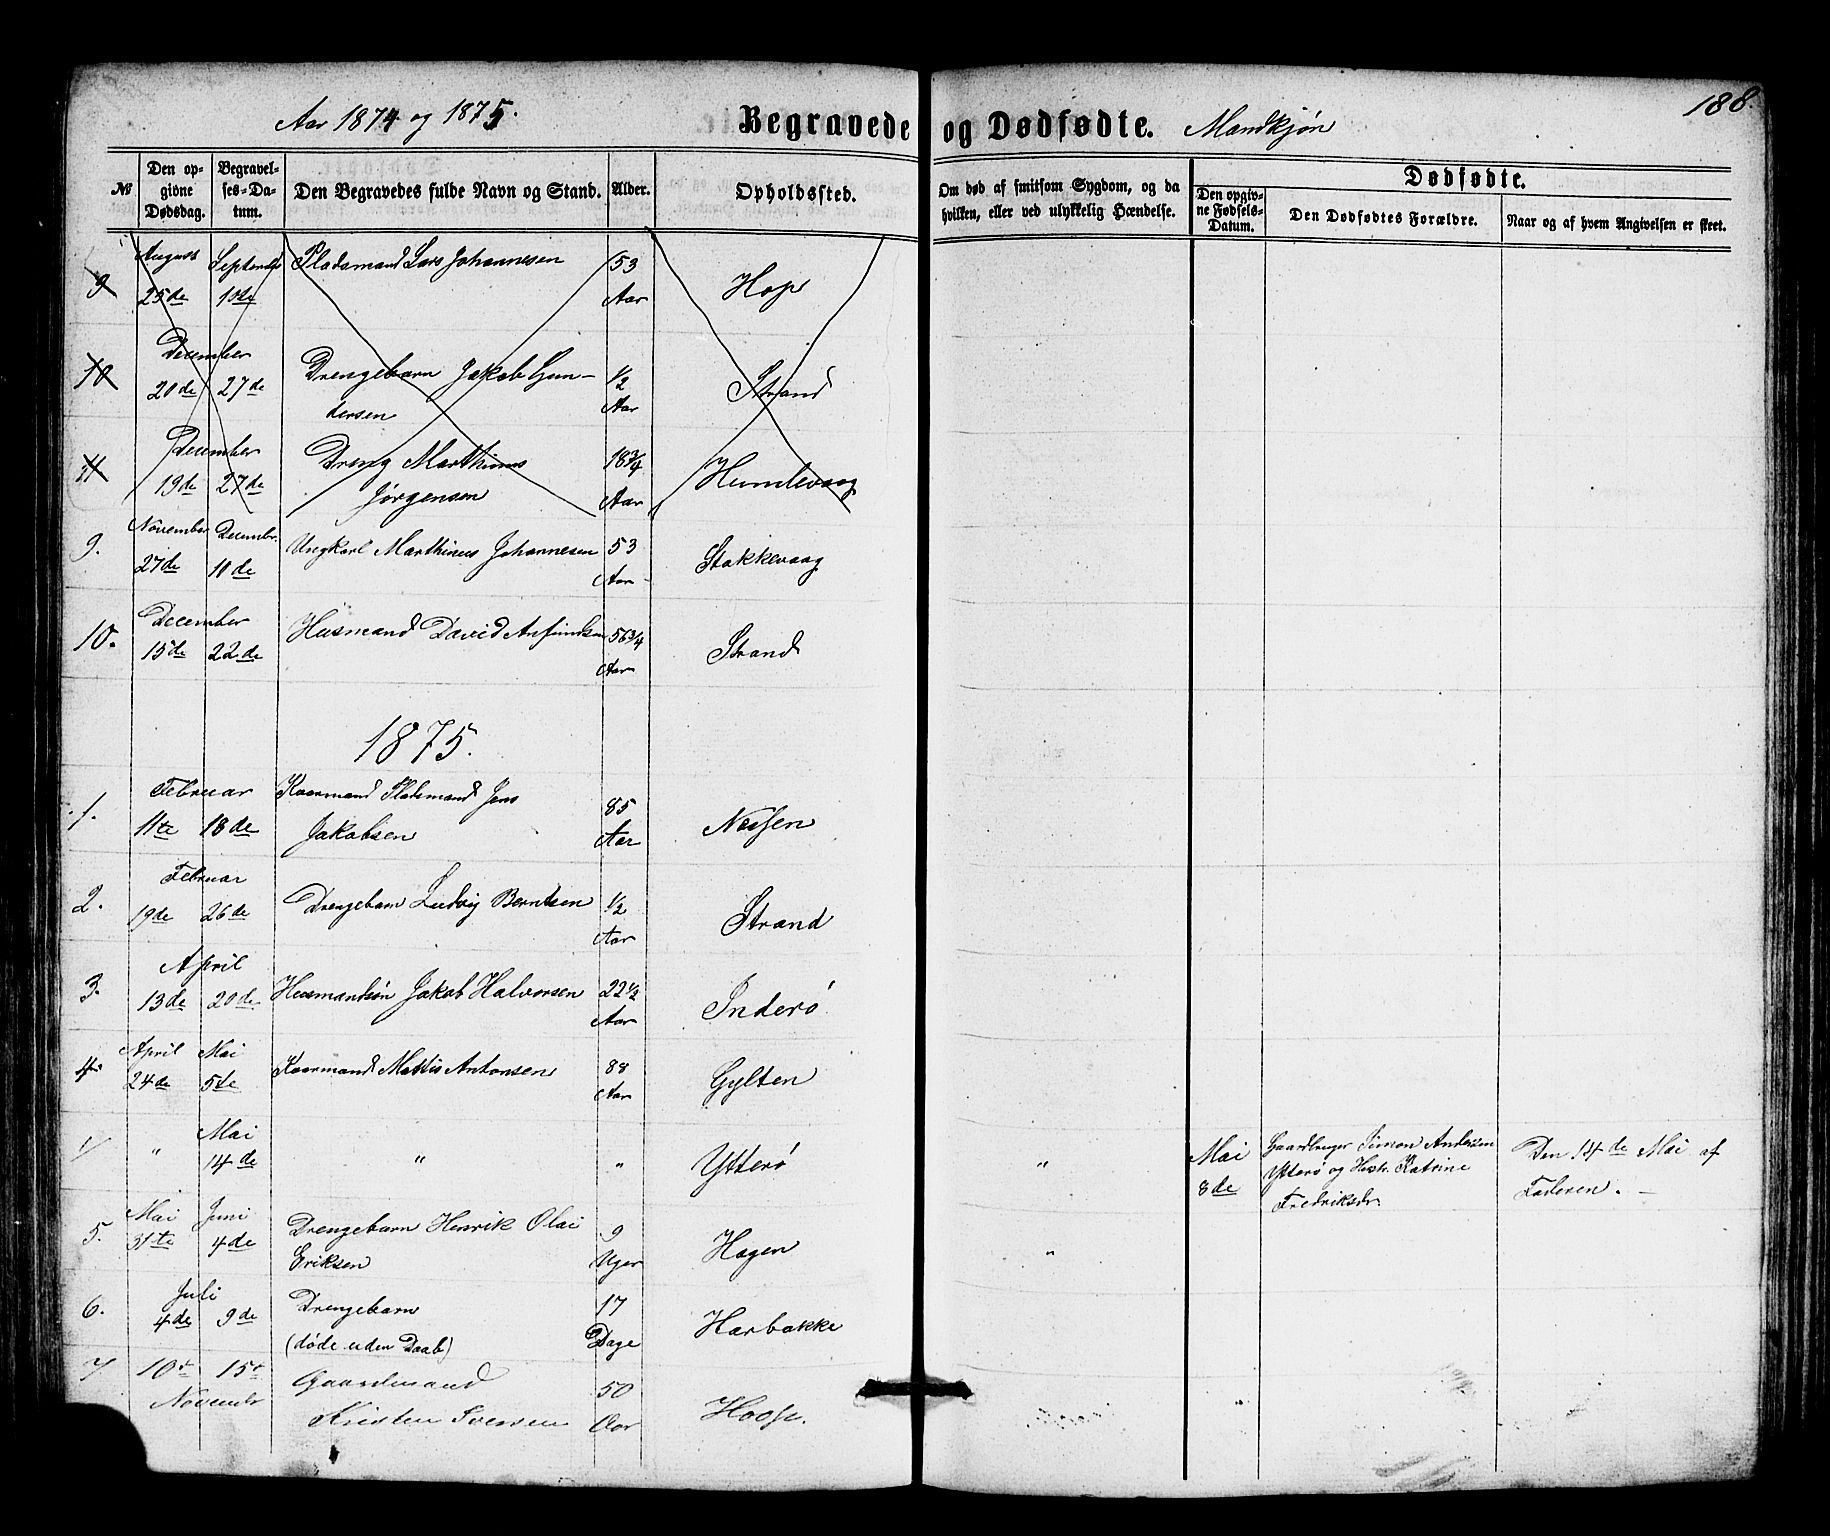 Aar 1874 og 1875.
Begravede og Dødfødte. Mandkjøn
188.
№
Den opgivne Dødsdag.
Begravelses-Datum.
Den Begravedes fulde Navn og Stand.
Alder.
Opholdssted.
Om død af smitsom Sygdom, og da hvilken, eller ved ulykkelig Hændelse.
Dødfødte.
Den opgivne Fødsels-Datum.
Den Dødfødtes Forældre.
Naar og af hvem Angivelsen er skeet.
9 August 25de September 10de Pladsmand Lars Johannesen 53 Aar Hop
10 December 20de 27de Drengebarn Jakob Gun-
dersen ½ Aar Strand
11 December 19de 27de Dreng Marthinus
Jørgensen 18¾ Aar Humlevaag
9. November 27de Decembr. 10de Ungkarl Marthinus Johannesen 53 Aar Stokkevaag
10. December 15de 22de Husmand David Anfindsen 56¾ Aar Strand
1875.
1. Februar 11te 18de Kaarmand Pladsmand Jens
Jakobsen 85 Aar Nessen
2. Februar 19de 26de Drengebarn Ludvig Berntsen ½ Aar Strand
3. April 13de 20de Husmandsøn Jakob Halvorsen 22½ Aar Inderø
4. April 24de Mai 5te Kaarmand Mattis Antonsen 88 Aar Gylten
1/ " Mai 14de " " Ytterø " Mai 8de Gaardbruger Simon Andersen
Ytterø og Hustr. Katrine
Fredriksdr. Den 14de Mai af
Faderen.
5. Mai 31te Juni 4de Drengebarn Henrik Olai
Eriksen 9 Uger Hagen "
6. Juli 4de 9de Drengebarn
(døde uden Daab) 17 Dage Harbakke
7 10de 15de November Gaardmand
Kristen Svensen 50 Aar Hoop.